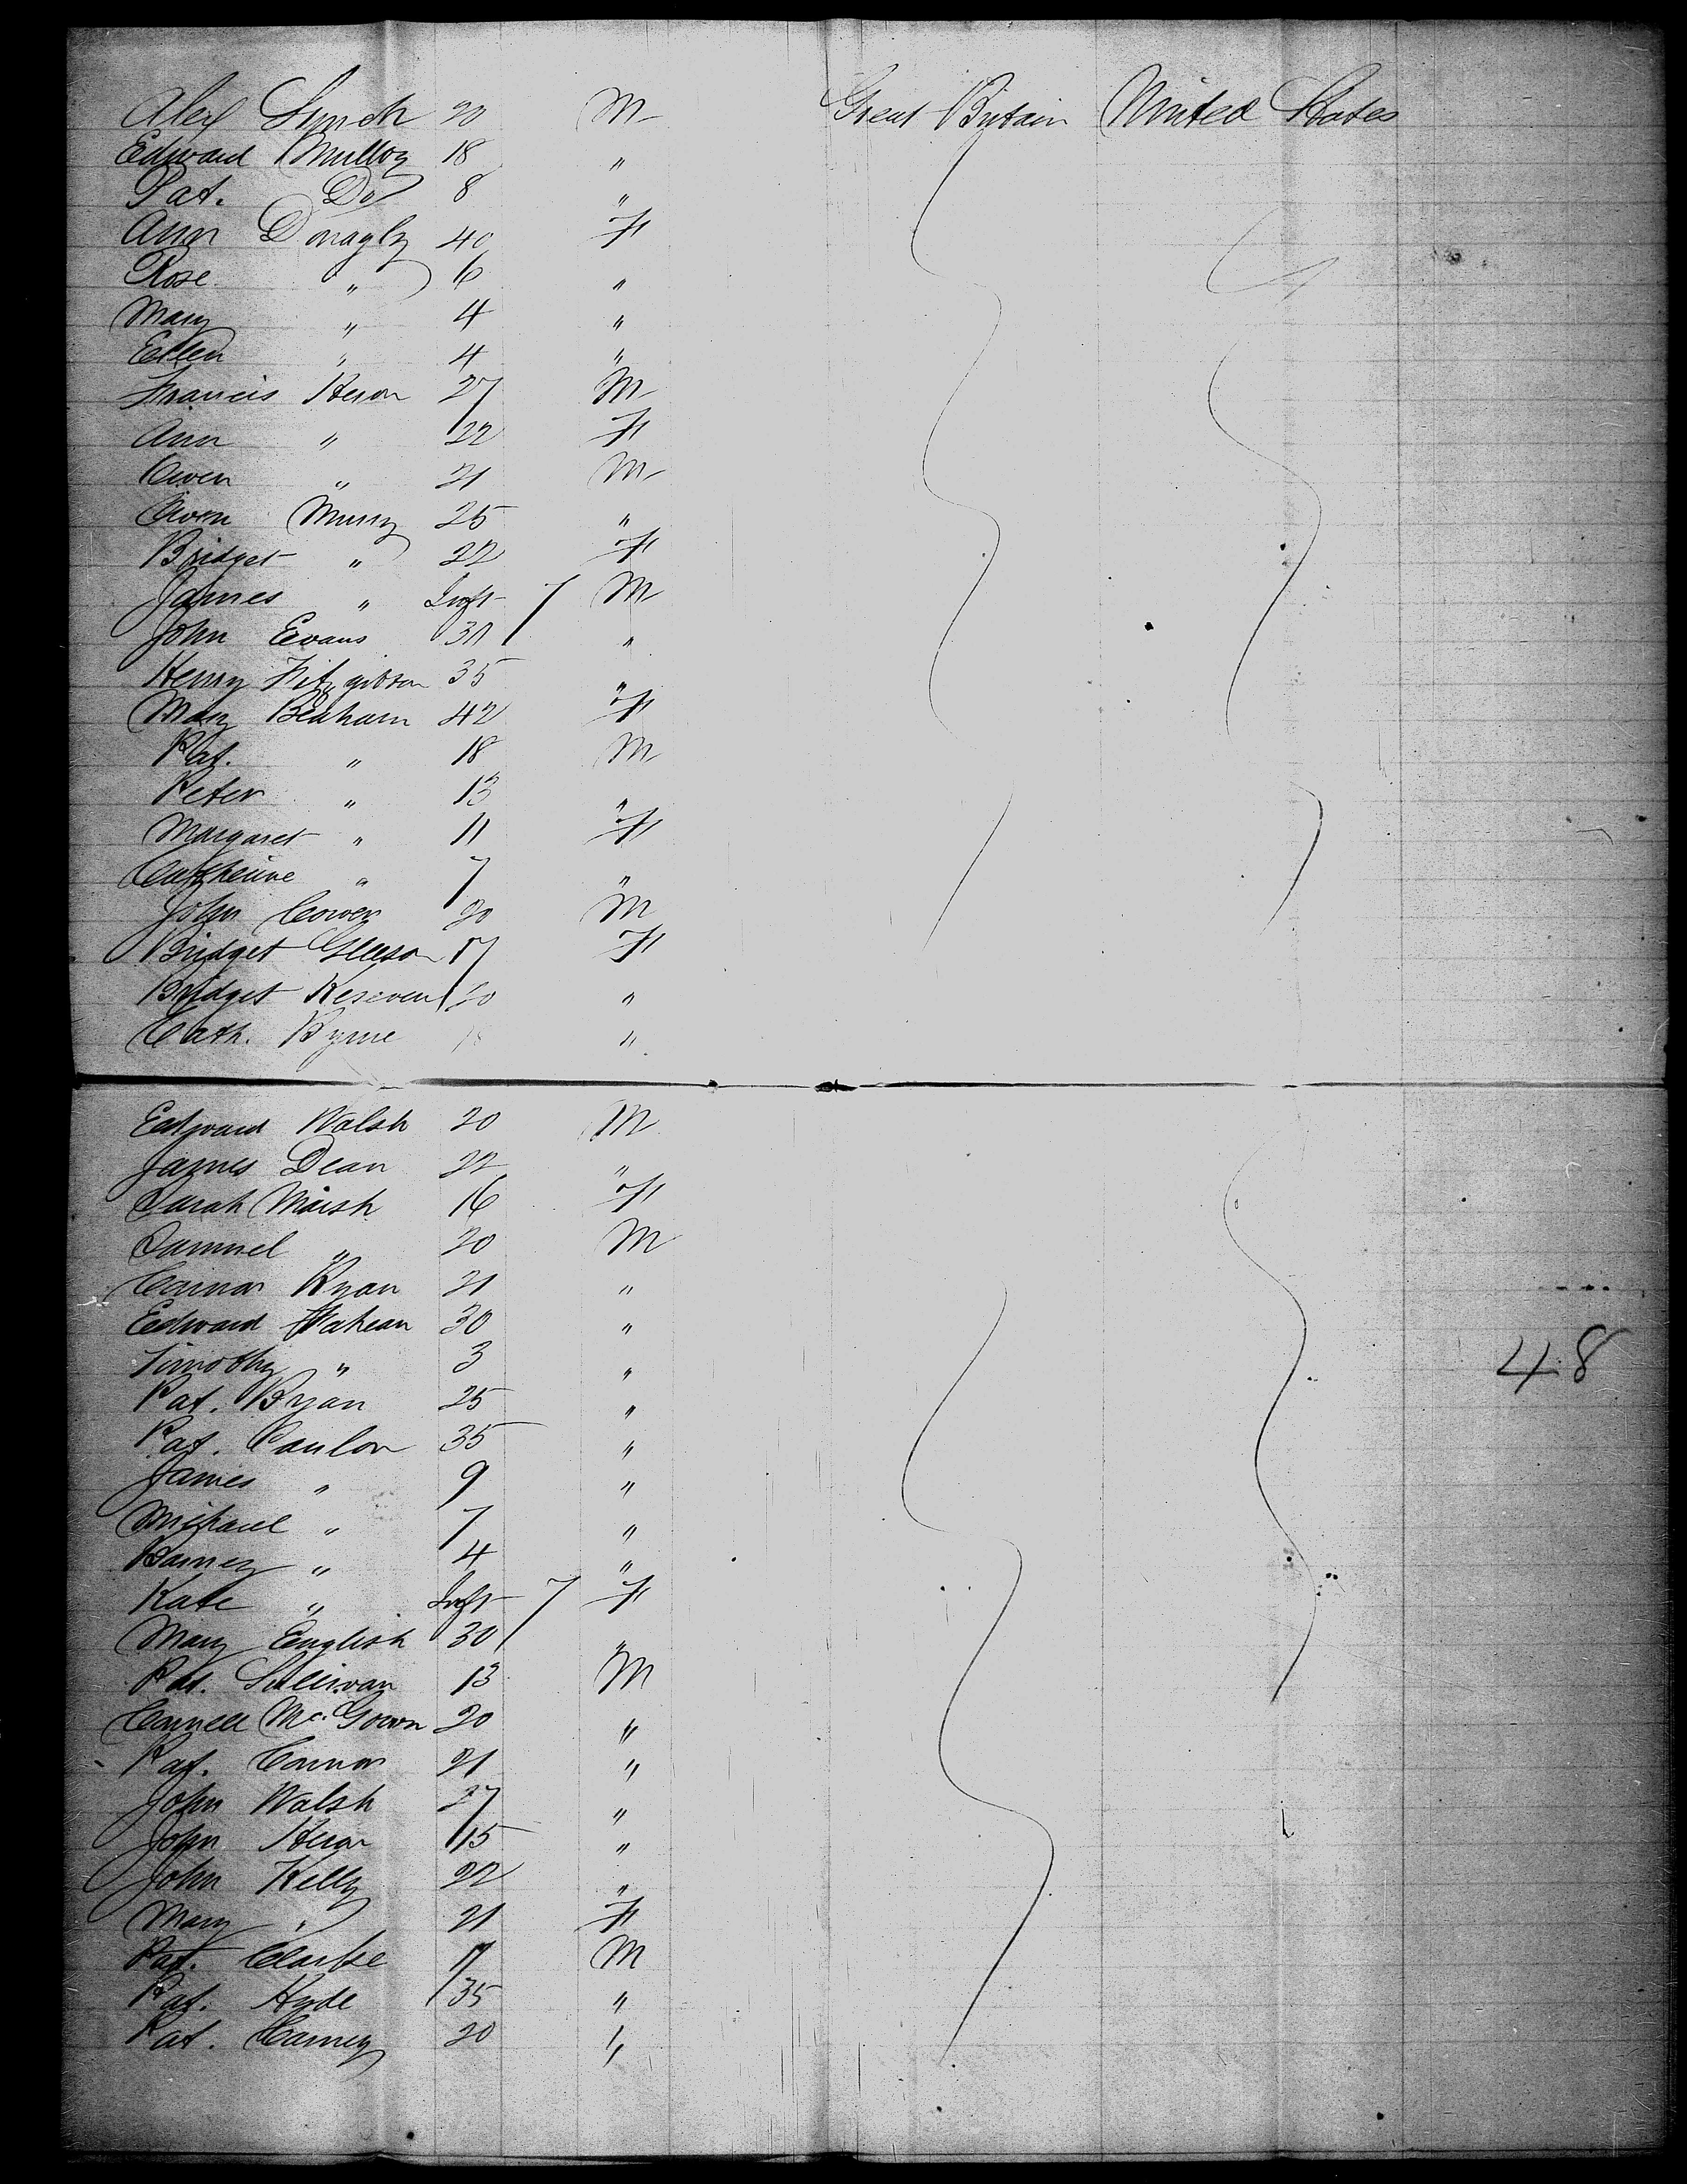 Alex Lynch 20 M Great Britain United States
Edward Mulloy 18 "
Pat. Do 8 "
Ann Donagly 40 F
Rose " 6 "
Mary " 4 "
Ellen " 4 "
Francis Heron 27 M
Ann " 22 F
Owen " 21 M
Owen Murry 25 "
Bridget " 22 F
James " Inft 7 M
John Evans 30 "
Henry Fitzgibbon 35 "
Mary Beaham 42 F
Pat. " 18 M
Peter " 13 "
Margaret " 11 F
Catherine " 7 "
John Cowen 20 M
Bridget Gleeson 17 F
Bridget 20 "
Cath. Byrne 18 "
Edward Walsh 20 M
James Dean 22 "
Sarah Marsh 16 F
Samuel " 20 M
Connor Ryan 21 "
Edward 30 "
Timothy " 3 "
Pat. Ryan 25 "
Pat. Canlon 35 "
James " 9 "
Michael " 7 "
Barney " 4 "
Kate " Inft 7 F
Mary English 30 "
Pat. Sullivan 13 M
Connell McGowan 20 "
Pat. Connor 21 "
John Walsh 27 "
John Heron 15 "
John Kelly 22 "
Mary " 21 F
Pat. Clarke 17 M
Pat. Hyde 35 "
Pat. Carney 20 "
48